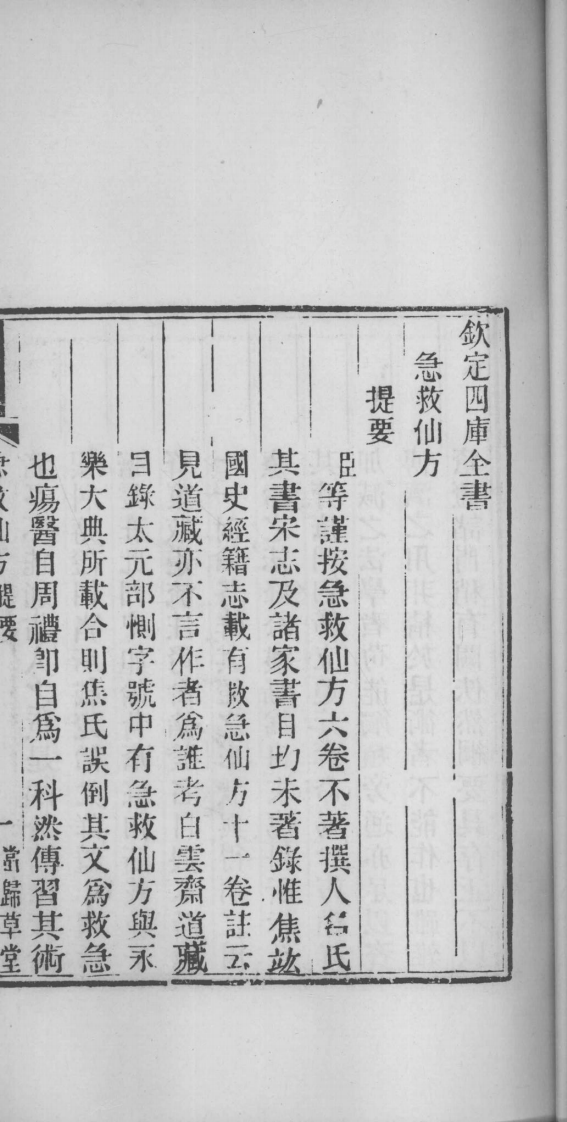 欽定四庫全書
急救仙方
提要
臣等謹按急救仙方六卷不著撰人名氏
其書宋志及諸家書目均未著錄惟焦竑
國史經籍志載有救急仙方十一卷註云
見道藏亦不言作者為誰考白雲齋道藏
目錄太元部惻字號中有急救仙方與永
樂大典所載合則焦氏誤倒其文為救急
也瘍醫自周禮卽自為一科然傳習其術
急救仙方提要 一 當歸草堂